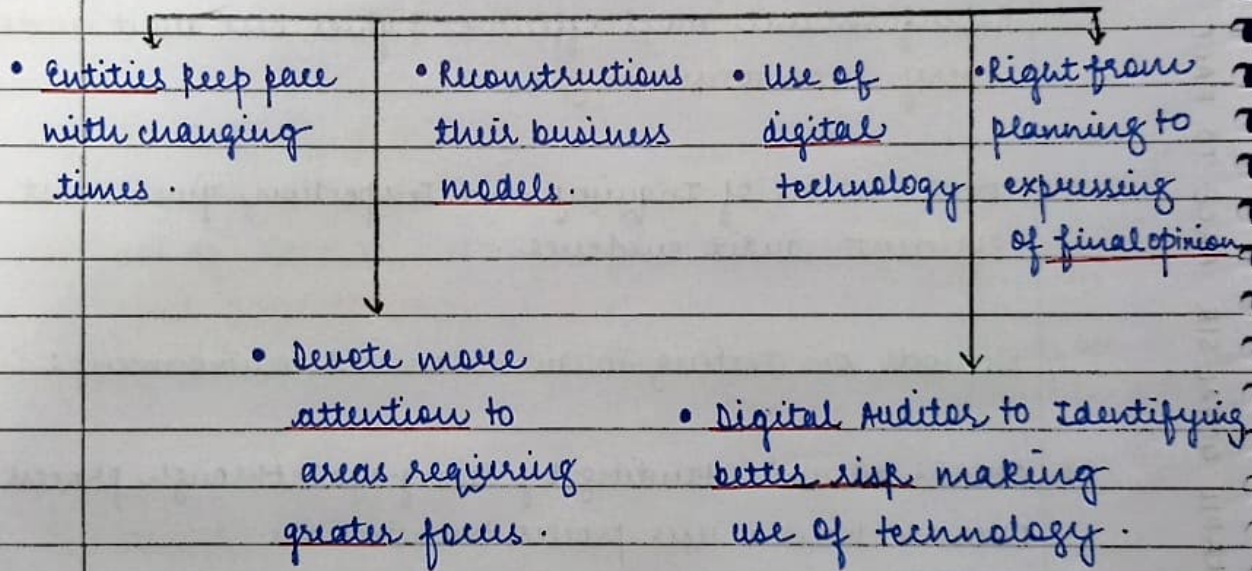 • Entities keep pace
with changing
times.
• Reconstructions
their business
models.
• Use of
digital
technology
• Right from
planning to
expressing
of final opinion
• Devote more
attention to
areas requiring
greater focus.
• Digital Auditor to Identifying
better risk making
use of technology.